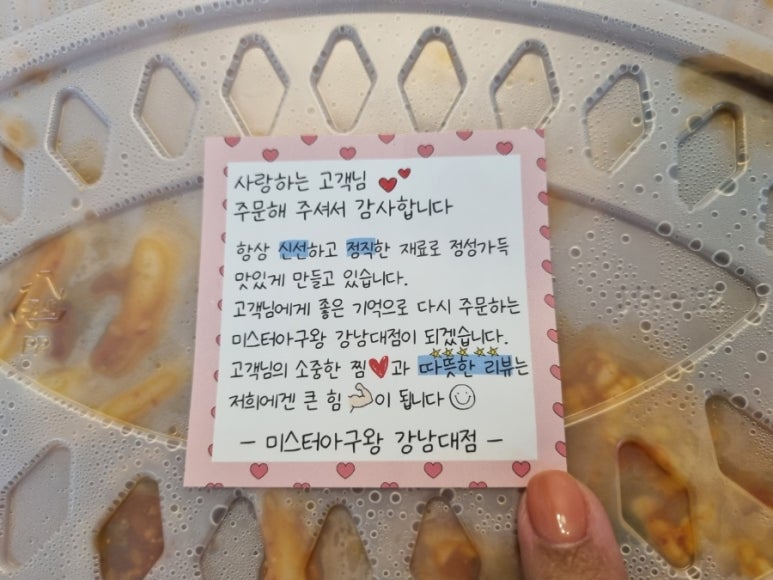 사랑하는 고객님
주문해 주셔서 감사합니다
항상 신선하고 정직한 재료로 정성가득
맛있게 만들고 있습니다.
고객님에게 좋은 기억으로 다시 주문하는
미스터아구왕 강남대점이 되겠습니다.
고객님의 소중한 찜과 따뜻한 리뷰는
저희에겐 큰 힘이 됩니다
- 미스터아구왕 강남대점 -
PP